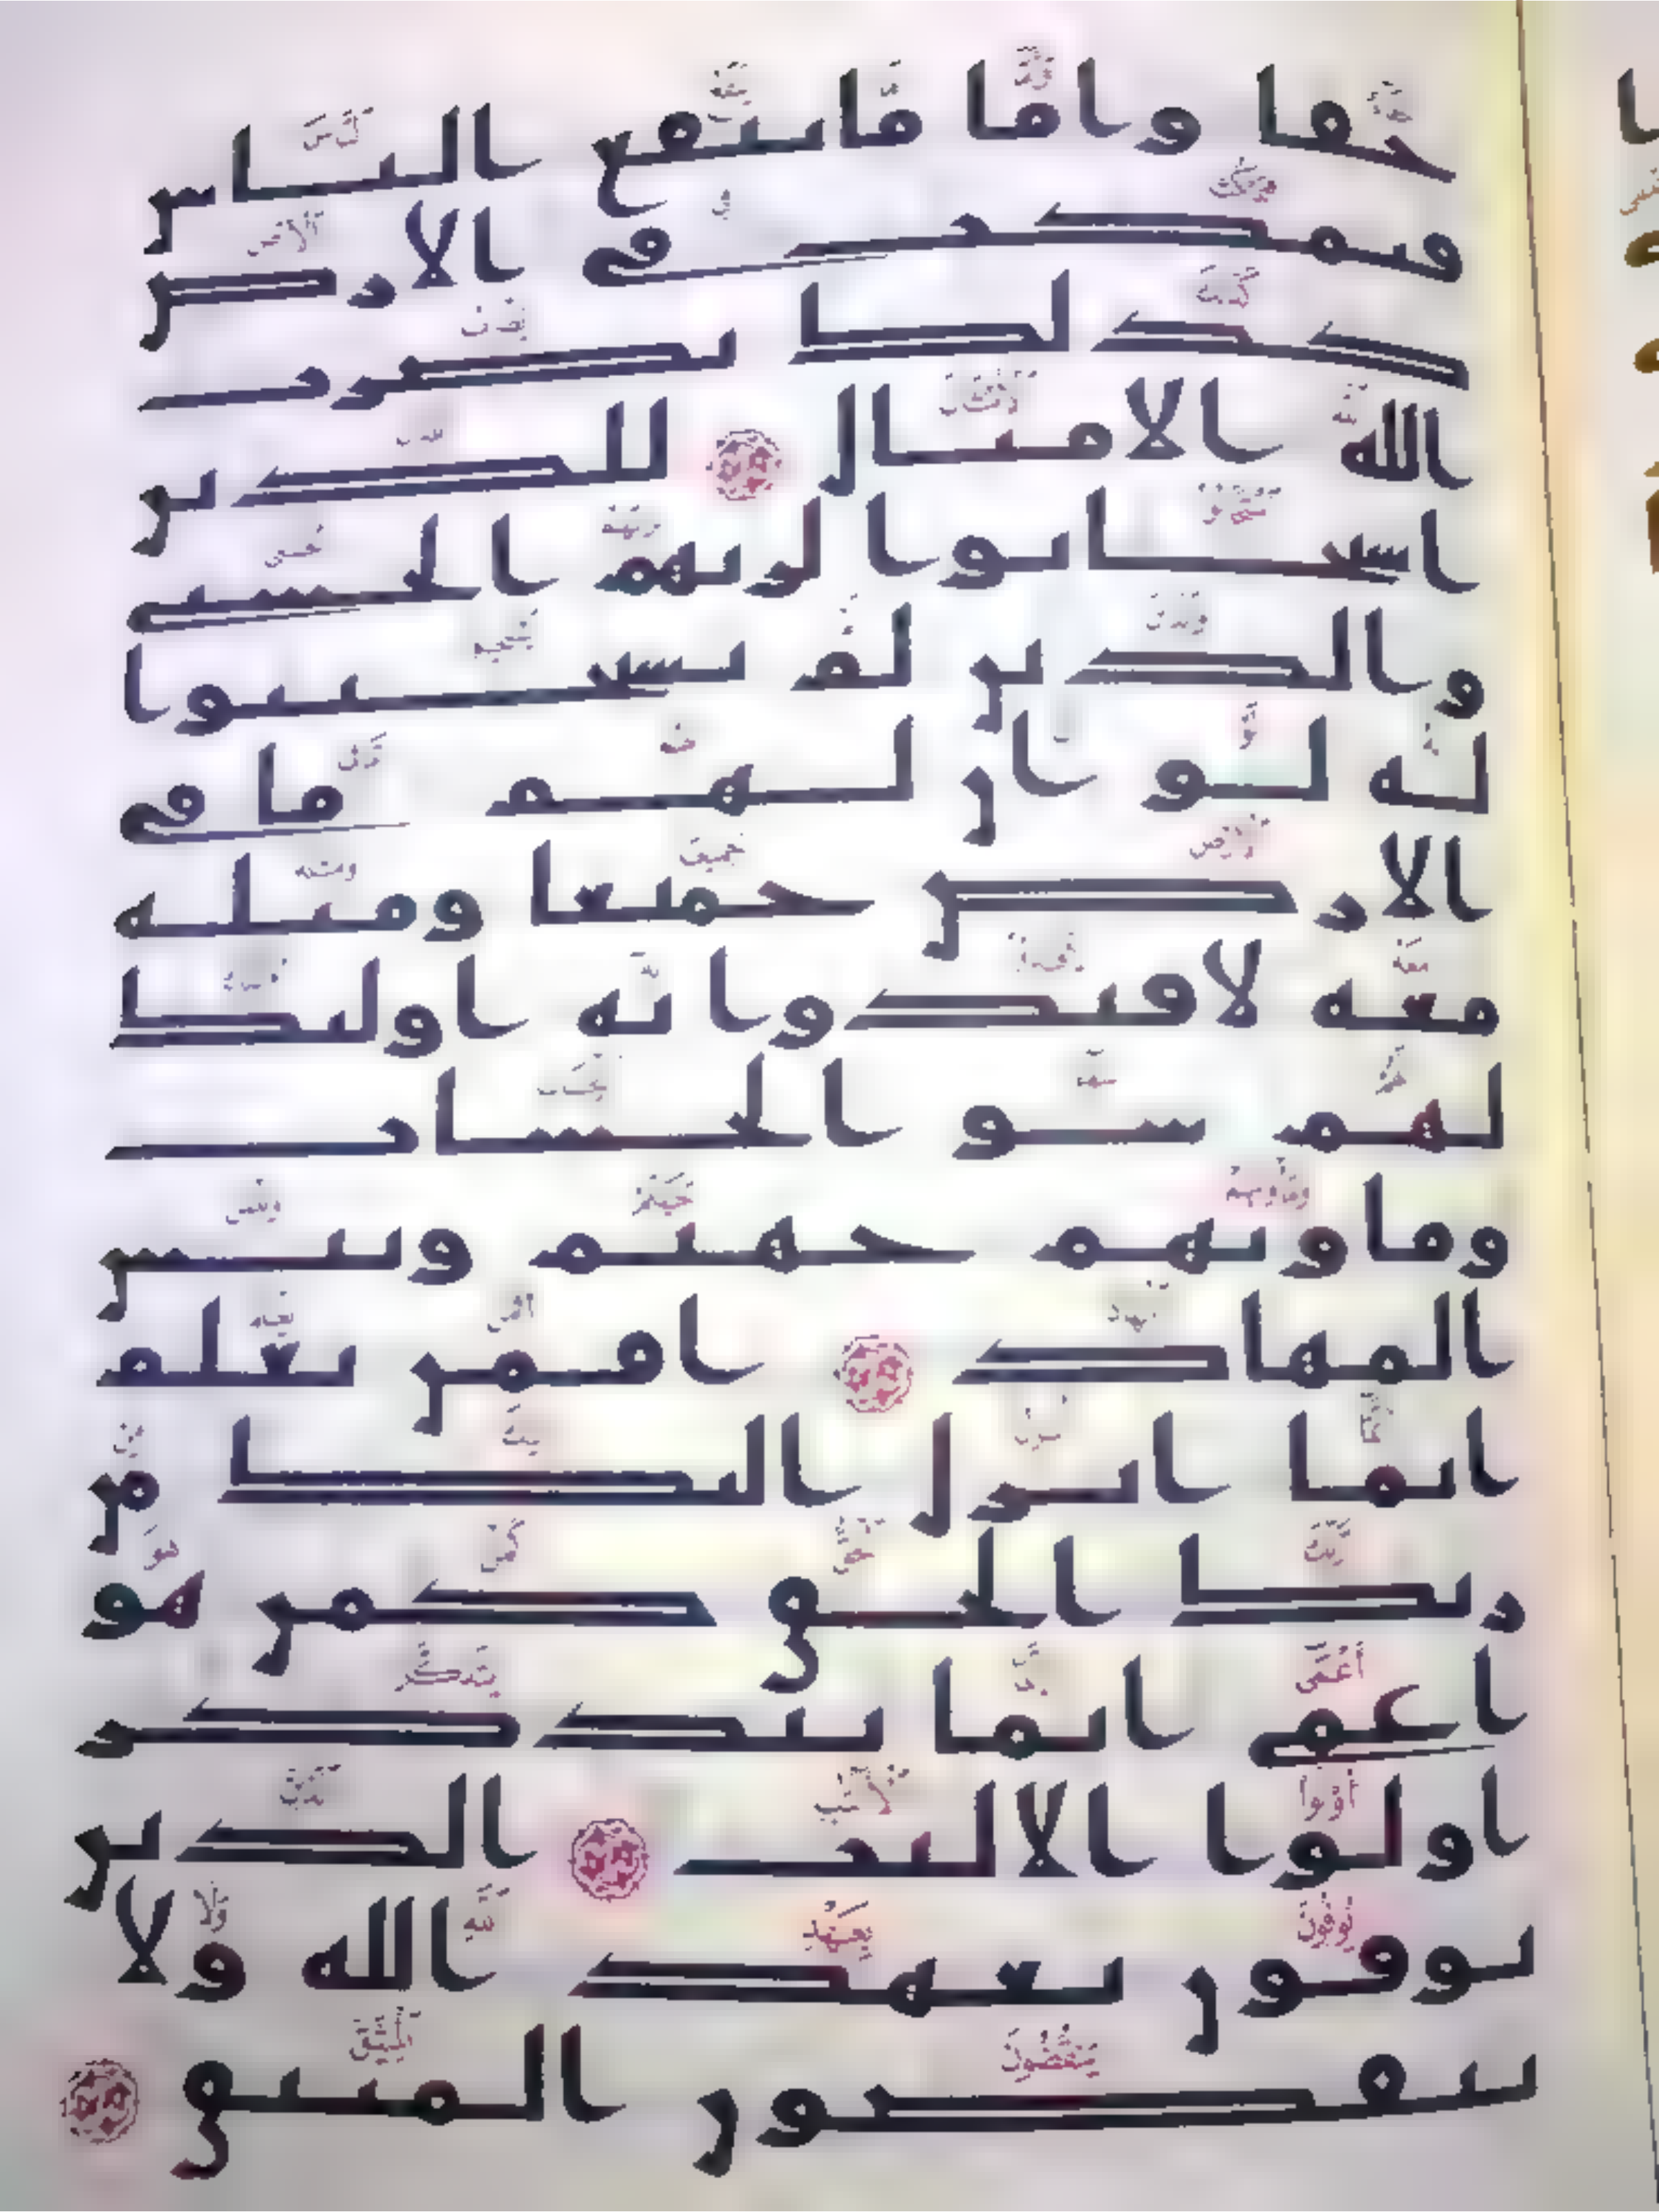 جفا واما ما ينفع الناس
فيمكث في الارض
كذلك يضرب
الله الامثال للذين
استجابوا لربهم الحسنى
والذين لم يستجيبوا
له لو ان لهم ما في
الارض جميعا ومثله
معه لافتدوا به اوليك
لهم سو الحساب
وماويهم جهنم وبيس
المهاد افمن يعلم
انما انزل اليك من
ربك الحق كمن هو
اعمى انما يتذكر
اولوا الالبب الذين
يوفون بعهد الله ولا
ينقضون الميثق